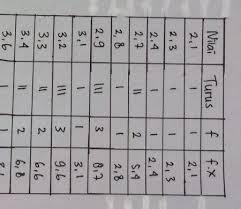 Nilai Turus f f.x
2,1 I 1 2,1
2,3 I 1 2,3
2,4 I 1 2,4
2,7 II 2 5,4
2,8 I 1 2,8
2,9 III 3 8,7
3,1 I 1 3,1
3,2 III 3 9,6
3,3 II 2 6,6
3,4 II 2 6,8
3,6 I 1